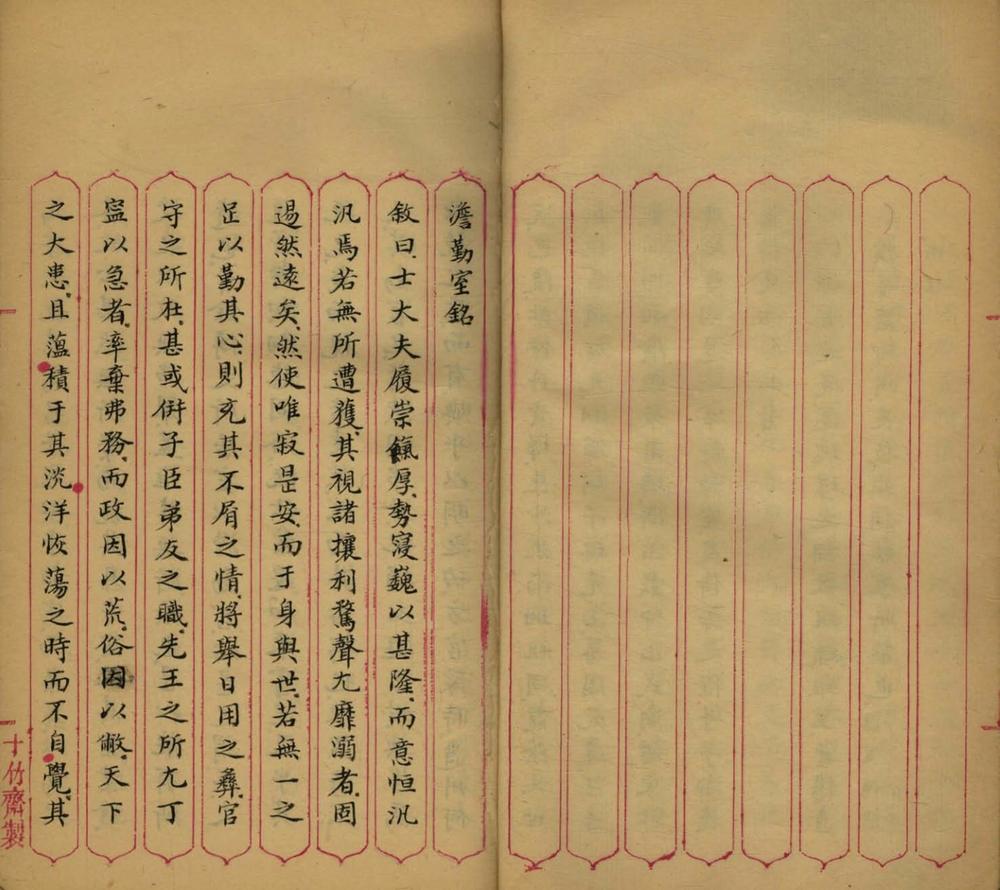 澹勤室銘
敘曰士大夫履崇饙厚勢寖巍以甚隆而意恒汎
汎焉若無所遭獲其視諸攘利騖聲尢靡溺者固
逿然遠矣然使唯寂是安而于身與世若無一之
足以勤其心則充其不屑之情將舉日用之彝官
守之所在甚或倂子臣弟友之職先王之所尢丁
寍以急者率棄弗務而政因以荒俗因以敝天下
之大患且薀積于其洸洋恢蕩之時而不自覺其
十竹齋製